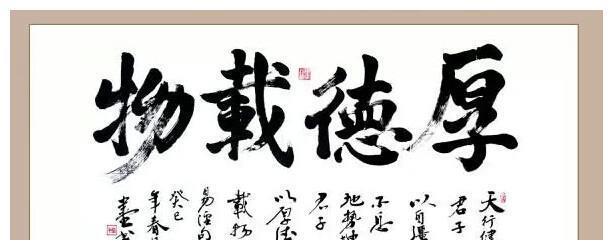 厚德載物
天行健
君子
以自強
不息
地勢坤
君子
以厚德
載物
易經句
癸巳
年春